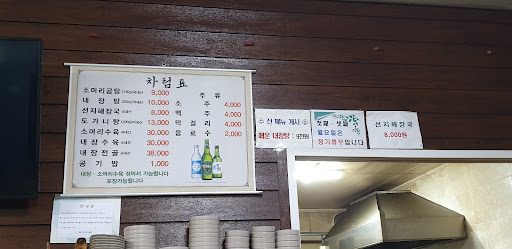 차림표
소머리곰탕 9,000
내장탕 10,000
선지해장국 8,000
도가니탕 13,000
소머리수육 30,000
내장수육 30,000
내장전골 38,000
공기밥 1,000
주류
소주 4,000
맥주 4,000
막걸리 4,000
음료수 2,000
내장·소머리수육 섞어서 가능합니다
포장가능합니다
신메뉴 개시
매운 내장탕
첫째·셋째
월요일은
정기휴무입니다
선지해장국
8,000원